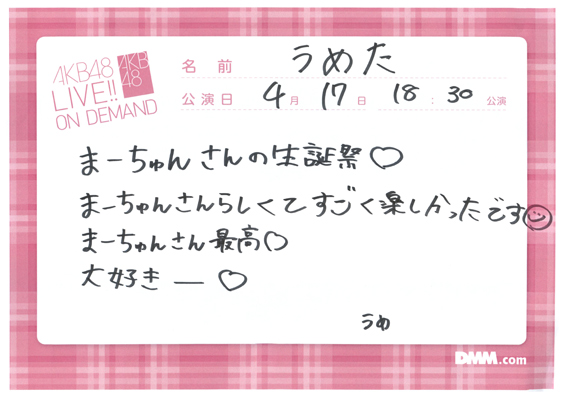 AKB48
LIVE!!
ON DEMAND
AKB
48
名前 うめた
公演日 4月 17日 18:30 公演
まーちゅんさんの生誕祭♡
まーちゅんさんらしくてすごく楽しかったです☺
まーちゅんさん最高♡
大好きー♡
うめ
DMM.com